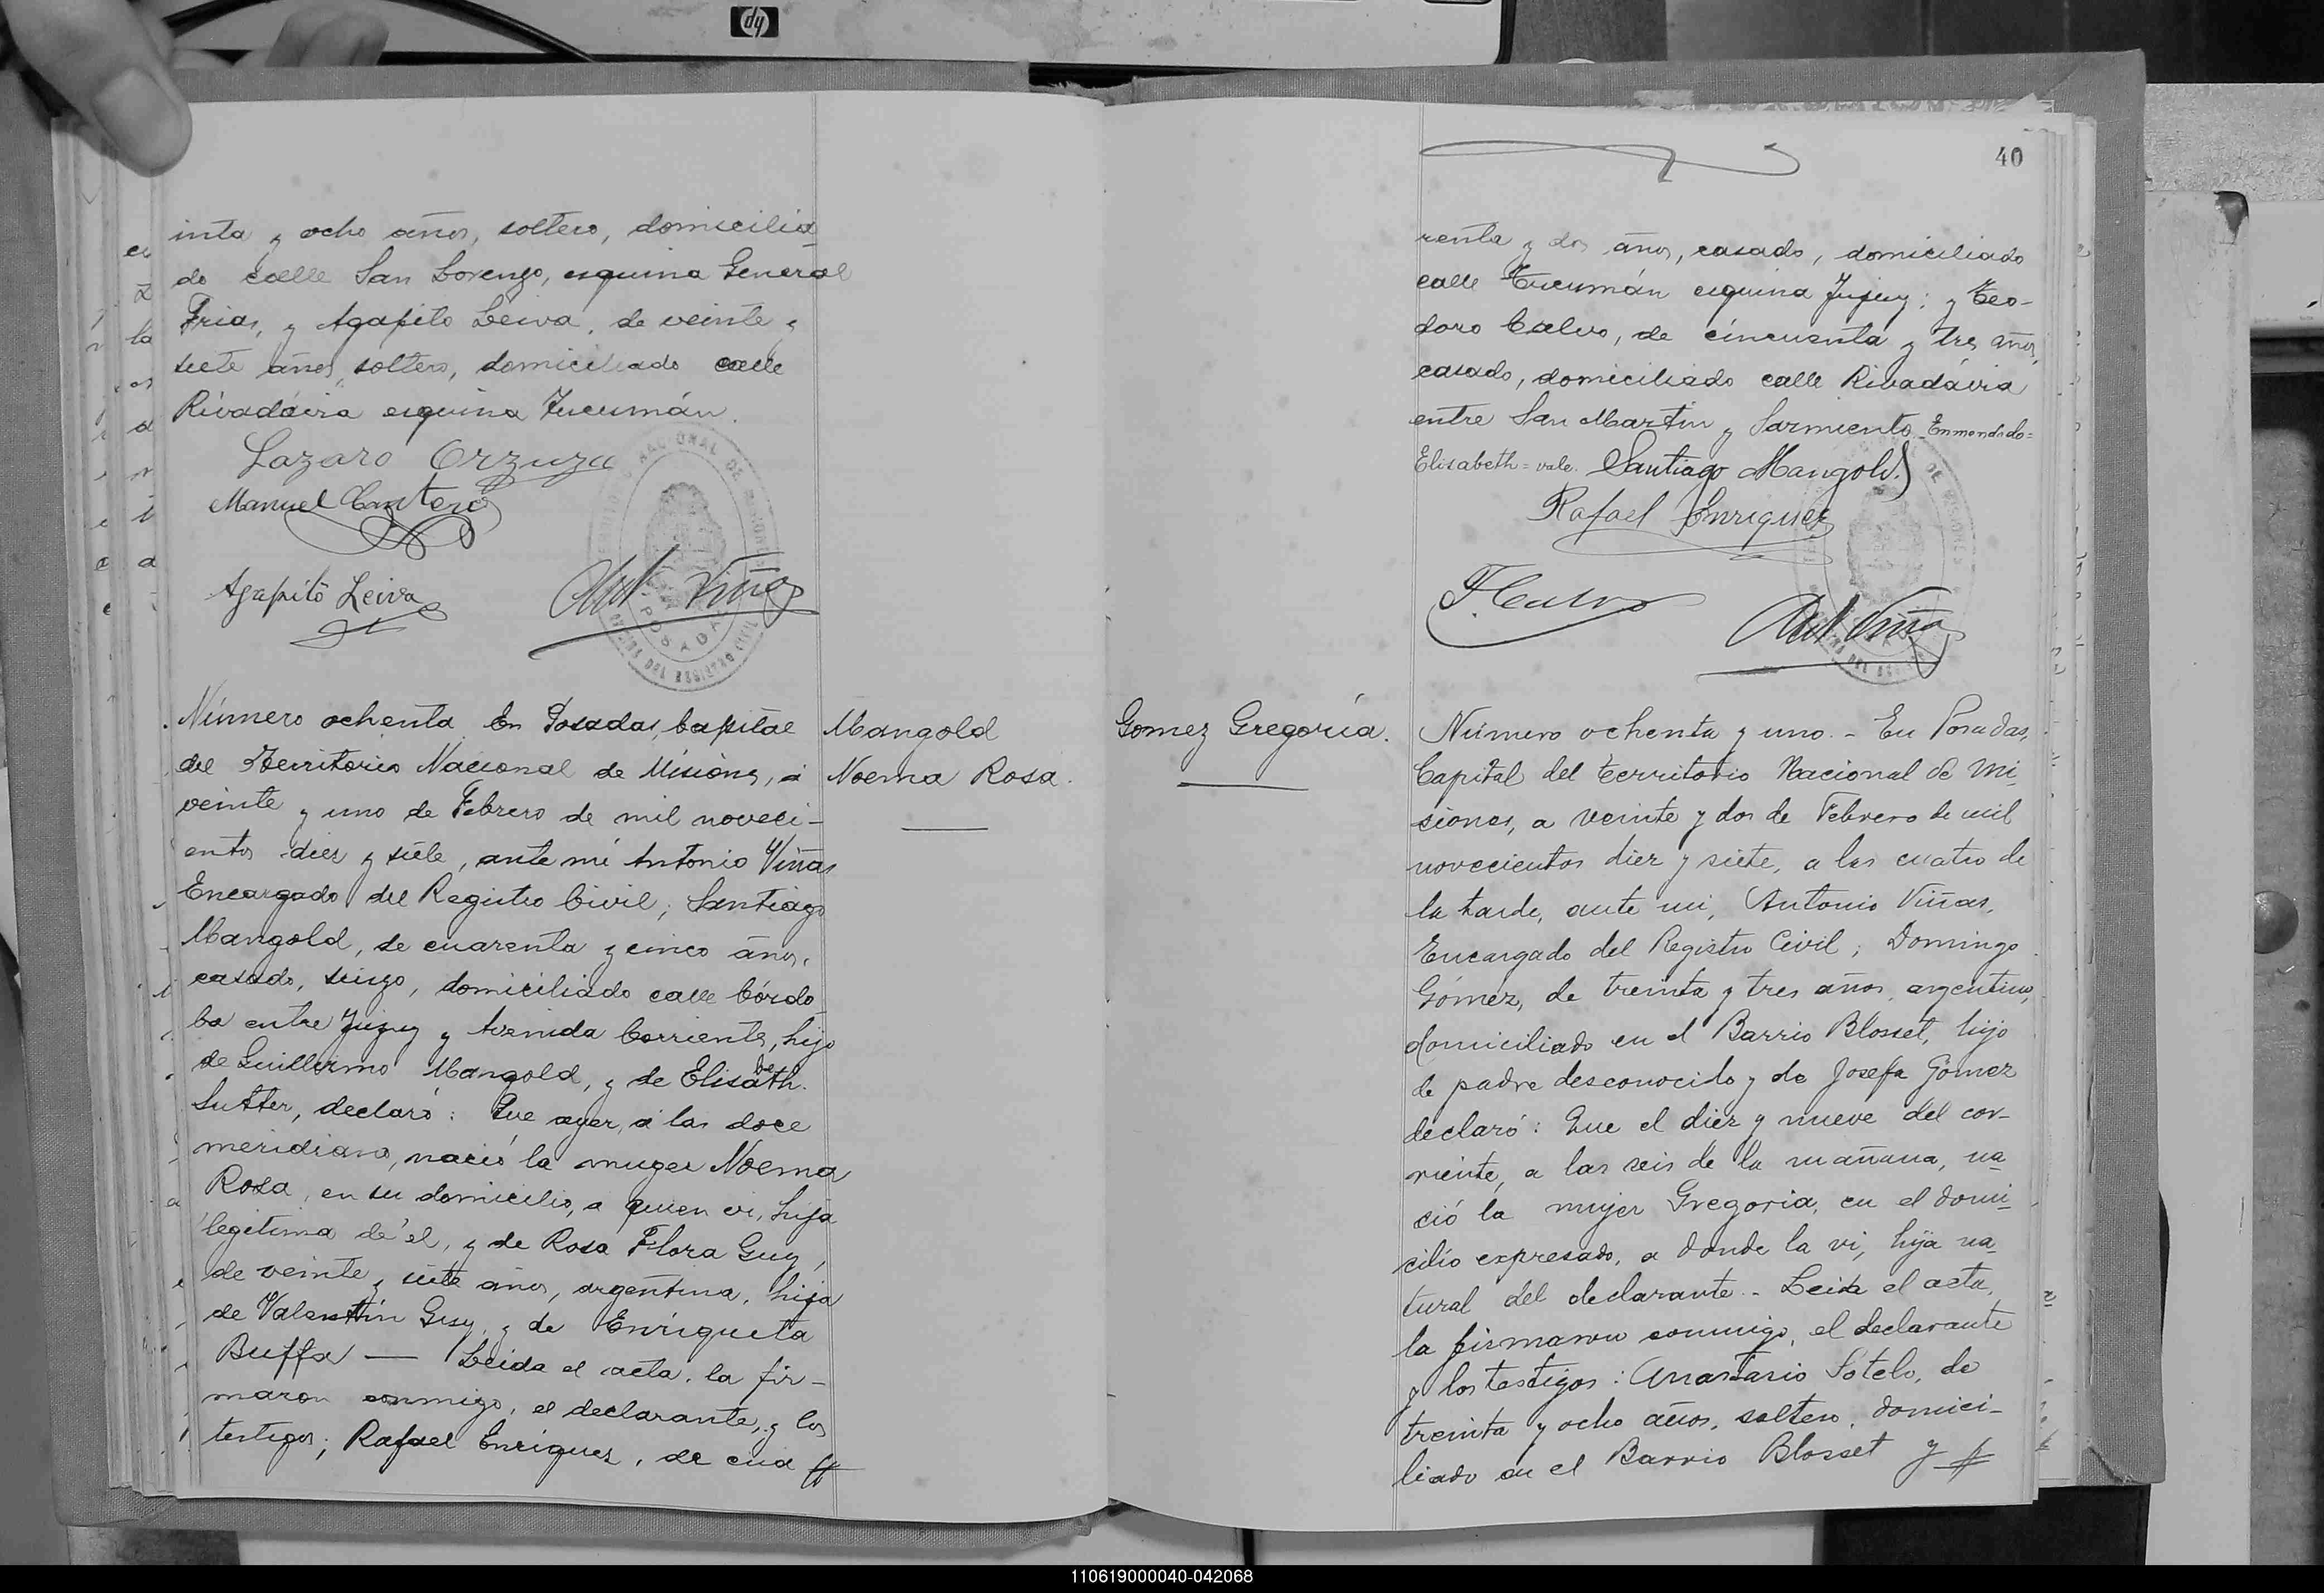 inta y ocho años, soltero, domicilia
do calle San Lorenzo, esquina General
Frias, y Agapito Leiva, de veinte y
siete años, soltero, domiciliado calle
Rivadávia esquina Tucumán.
Lazaro Orzuza
Manuel Cantero
Agapito Leiva
Ant. Viñas
Número ochenta En Posadas, Capital
del Territorio Nacional de Misiones, á
veinte y uno de Febrero de mil noveci-
entos diez y siete, ante mi Antonio Viñas
Encargado del Registro Civil; Santiago
Mangold, de cuarenta y cinco años,
casado, suizo, domiciliado calle Córdo
ba entre Jujuy y Avenida Corrientes, hijo
de Guillermo Mangold, y de Elisabeth
Sutter, declaró: Que ayer, á las doce
meridiano, nació la muger Noema
Rosa, en su domicilio, a quien vi, hija
legitima de él, y de Rosa Flora Guy,
de veinte y siete años, argentina, hija
de Valentin Guy, y de Enriqueta
Buffa — Leida el acta, la fir-
maron conmigo, el declarante, y los
testigos; Rafael Enriquez, de cua
Mangold
Noema Rosa.
40
renta y dos años, casado, domiciliado
calle Tucumán esquina Jujuy; y Teo-
doro Calvo, de cincuenta y tres años,
casado, domiciliado calle Rivadávia
entre San Martin y Sarmiento. Enmendado=
Elisabeth=vale. Santiago Mangold.
Rafael Enriquez
T. Calvo
Ant. Viñas
Gomez Gregoria.
Número ochenta y uno.- En Posadas,
Capital del territorio Nacional de Mi
siones, a veinte y dos de Febrero de mil
novecientos diez y siete, a las cuatro de
la tarde, ante mi, Antonio Viñas,
Encargado del Registro Civil; Domingo
Gómez, de treinta y tres años, argentino,
domiciliado en el Barrio Blosset, hijo
de padre desconocido y de Josefa Gómez
declaró: Que el diez y nueve del cor-
riente, a las seis de la mañana, na
ció la mujer Gregoria, en el domi
cilio expresado, a donde la vi, hija na
tural del declarante.- Leida el acta,
la firmaron conmigo, el declarante
y los testigos: Anastasio Sotelo, de
treinta y ocho años, soltero, domici-
liado en el Barrio Blosset y
110619000040-042068